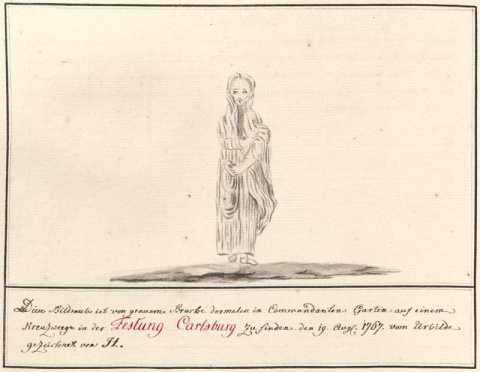 Diese Bildnuls ist von grauem Stucke dermalen in Commandanten Garten auf einem
Kreuzweege in der Festung Carlsburg zu finden. den 19. Aug. 1767. vom Urbilde
gezeichnet von